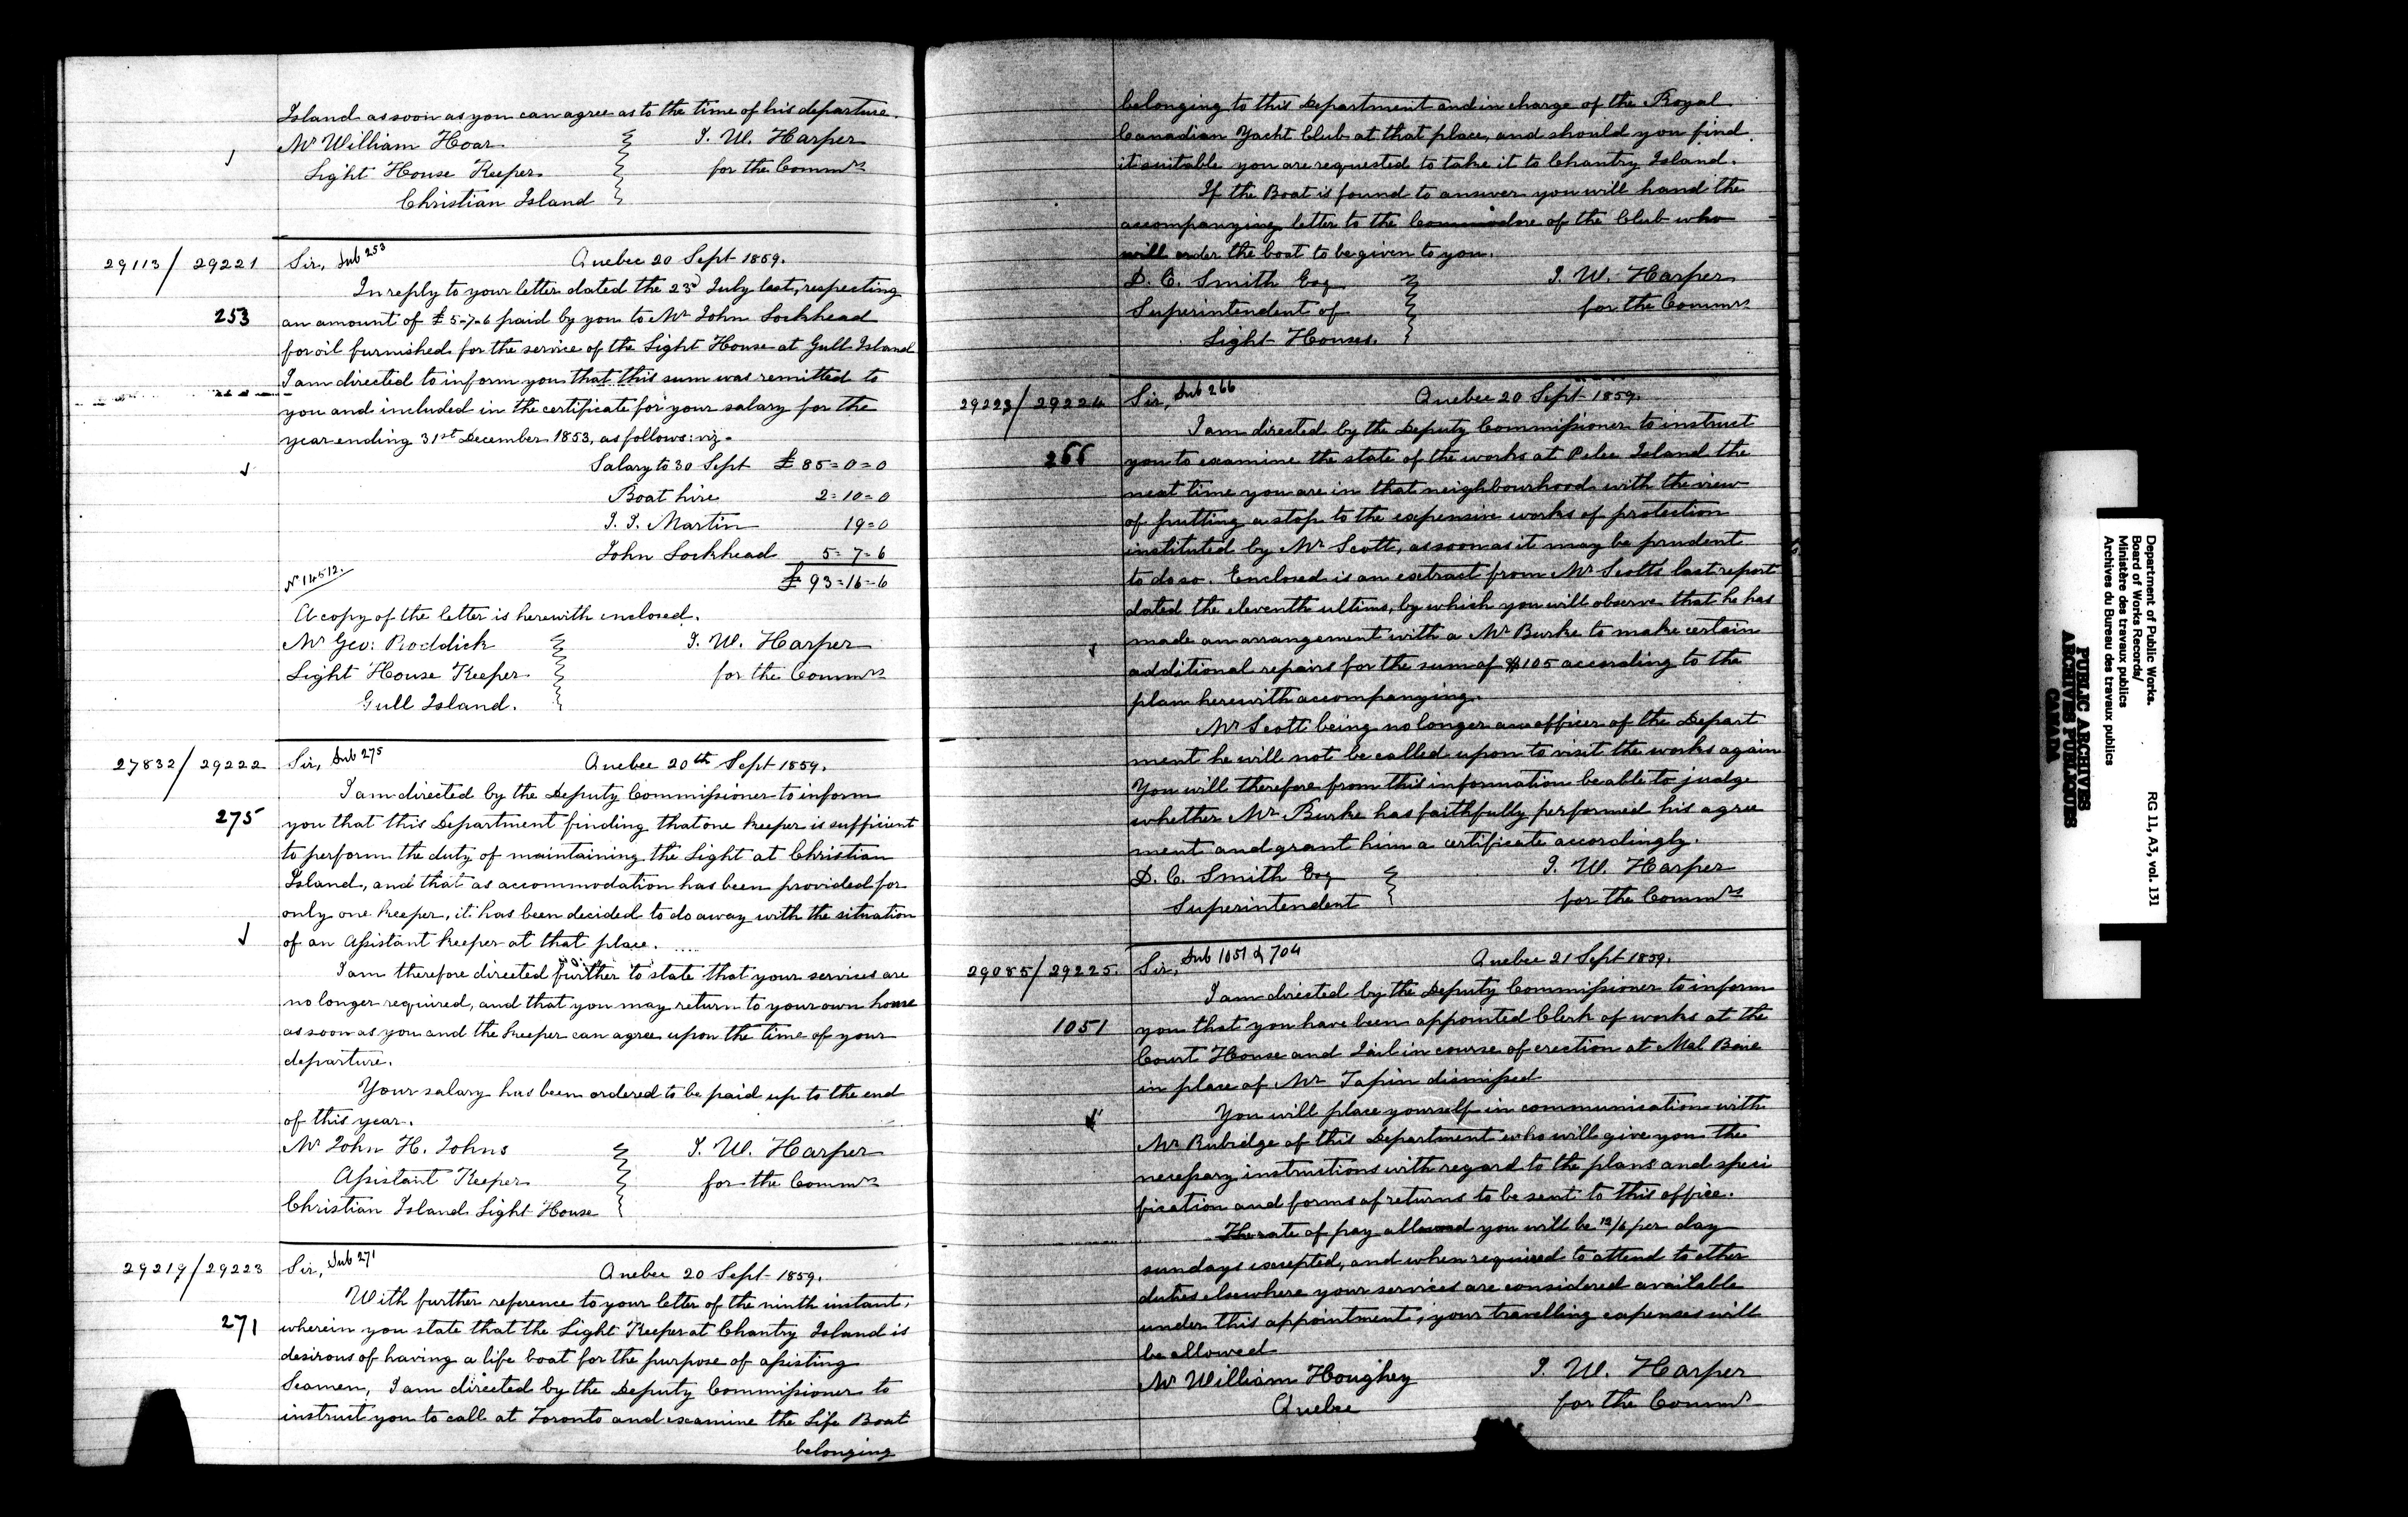 Island as soon as you can agree as to the time of his departure.
Mr William Hoar
Light House Keeper
Christian Island
J. W. Harper
for the Commrs
29113/29221
Sir, Sub 253
Quebec 20 Sept 1859.
In reply to your letter dated the 23d July last, respecting
253
an amount of £5-7-6 paid by you to Mr John Lockhead
for oil furnished for the service of the Light House at Gull Island
I am directed to inform you that this sum was remitted to
you and included in the certificate for your salary for the
year ending 31st December 1853, as follows: viz -
Salary to 30 Sept £ 85=0=0
Boat hire 2=10=0
J. J. Martin 19=0
John Lockhead 5=7=6
£ 93=16=6
No 14512.
A copy of the letter is herewith enclosed.
Mr Geo: Roddick
Light House Keeper
Gull Island.
J. W. Harper
for the Commrs
27832/29222
Sir, Sub 275
Quebec 20th Sept 1859.
I am directed by the Deputy Commissioner to inform
275
you that this Department finding that one keeper is sufficient
to perform the duty of maintaining the Light at Christian
Island, and that as accommodation has been provided for
only one keeper, it has been decided to do away with the situation
of an Assistant keeper at that place.
I am therefore directed further to state that your services are
no longer required, and that you may return to your own home
as soon as you and the keeper can agree upon the time of your
departure.
Your salary has been ordered to be paid up to the end
of this year.
Mr John H. Johns
Assistant Keeper
Christian Island Light House
J. W. Harper
for the Commrs
29219/29223
Sir, Sub 271
Quebec 20 Sept 1859.
With further reference to your letter of the ninth instant,
271
wherein you state that the Light Keeper at Chantry Island is
desirous of having a life boat for the purpose of assisting
Seamen, I am directed by the Deputy Commissioner to
instruct you to call at Toronto and examine the Life Boat
belonging
belonging to this Department and in charge of the Royal
Canadian Yacht Club at that place, and should you find
it suitable you are requested to take it to Chantry Island.
If the Boat is found to answer you will hand the
accompanying letter to the Commodore of the Club who
will order the boat to be given to you.
D. C. Smith Esq
Superintendent of
Light Houses.
J. W. Harper
for the Commrs
29223/29224
Sir, Sub 266
Quebec 20 Sept 1859.
I am directed by the Deputy Commissioner to instruct
266
you to examine the state of the works at Pelee Island the
next time you are in that neighbourhood with the view
of putting a stop to the expensive works of protection
instituted by Mr Scott, as soon as it may be prudent
to do so. Enclosed is an extract from Mr Scotts last report
dated the eleventh ultimo, by which you will observe that he has
made an arrangement with a Mr Burke to make certain
additional repairs for the sum of $105 according to the
plan herewith accompanying.
Mr Scott being no longer an officer of the Depart
ment he will not be called upon to visit the works again
You will therefore from this information be able to judge
whether Mr Burke has faithfully performed his agree
ment and grant him a certificate accordingly.
D. C. Smith Esq
Superintendent
J. W. Harper
for the Commrs
29085/29225.
Sir, Sub 1051 & 704
Quebec 21 Sept 1859.
I am directed by the Deputy Commissioner to inform
1051
you that you have been appointed Clerk of works at the
Court House and Jail in course of erection at Mal Baie
in place of Mr Tapin dismissed
You will place yourself in communication with
Mr Rubidge of this Department who will give you the
necessary instructions with regard to the plans and speci
fication and forms of returns to be sent to this office.
The rate of pay allowed you will be 12/6 per day
sundays excepted, and when required to attend to other
duties elsewhere your services are considered available
under this appointment; your travelling expenses will
be allowed
Mr William Houghey
Quebec
J. W. Harper
for the Commrs
Department of Public Works.
Board of Works Records/
Ministère des travaux publics
Archives du Bureau des travaux publics
RG 11, A3, vol. 131
PUBLIC ARCHIVES
ARCHIVES PUBLIQUES
CANADA